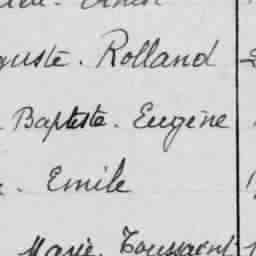 Rolland
Baptiste. Eugène
Emile
Marie. Toussaint